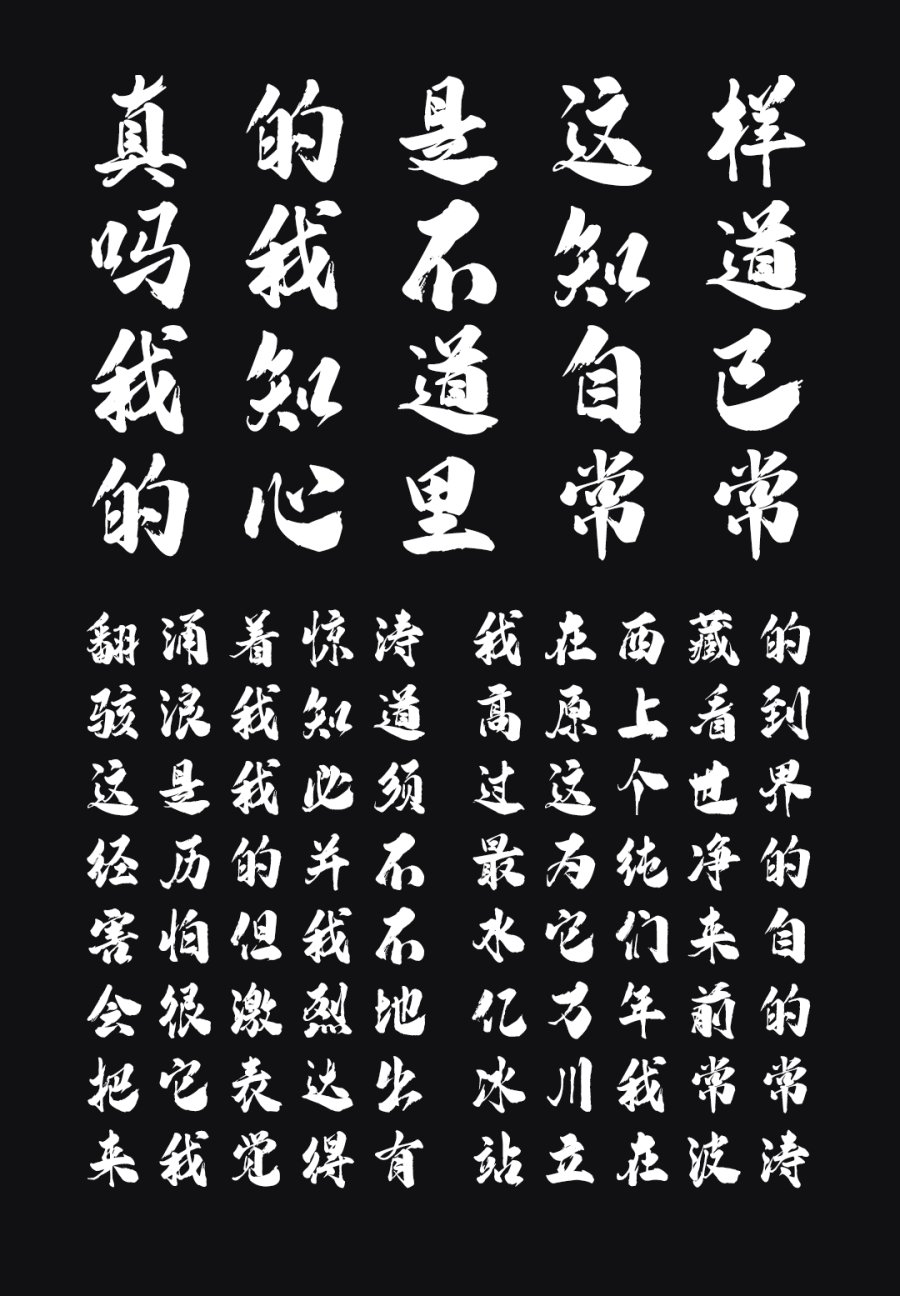 真的是这样
吗我不知道
我知道自已
的心里常常
翻涌着惊涛
骇浪我知道
这是我必须
经历的并不
害怕但我不
会很激烈地
把它表达出
来我觉得有
我在西藏的
高原上看到
过这个世界
最为纯净的
水它们来自
亿万年前的
冰川我常常
站立在波涛